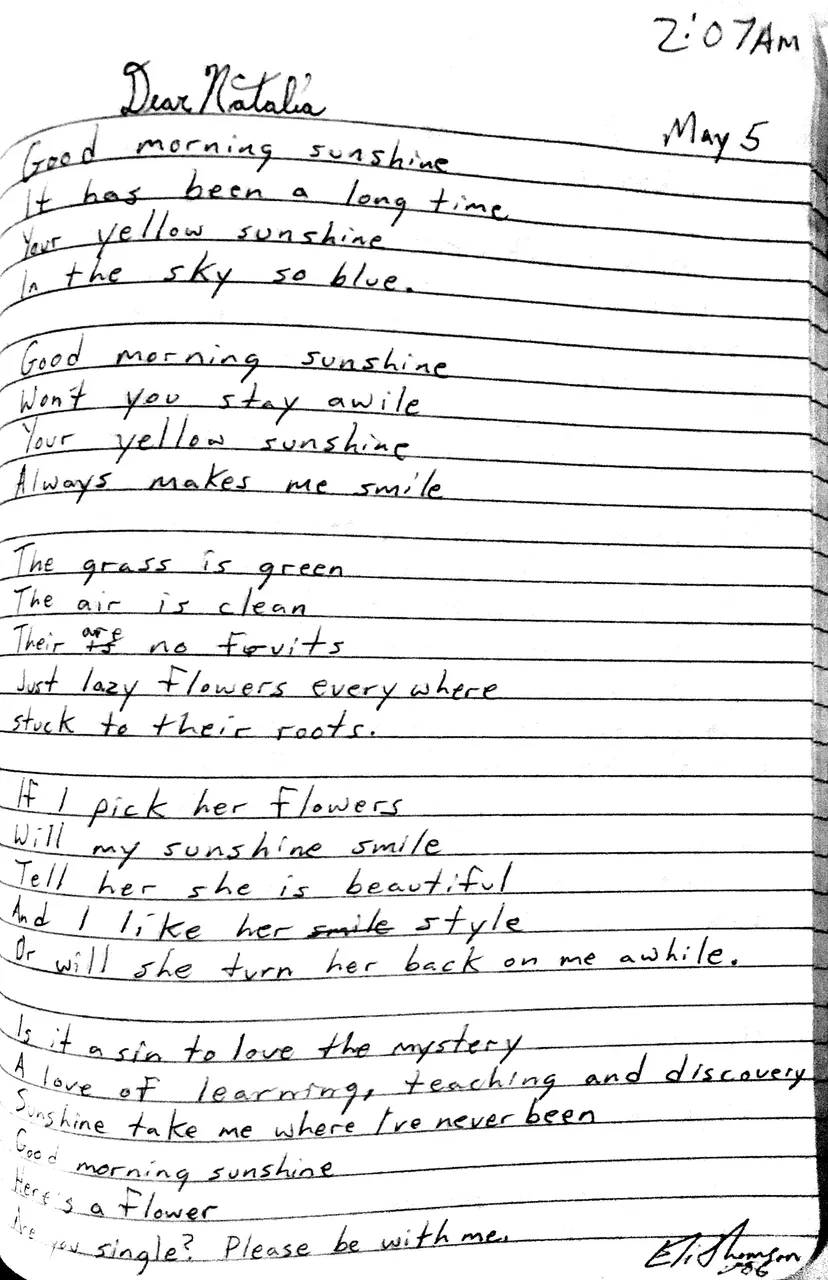 2:07AM
Dear Natalia
May 5
Good morning sunshine
It has been a long time
Your yellow sunshine
In the sky so blue.
Good morning sunshine
Won't you stay awile
Your yellow sunshine
Always makes me smile
The grass is green
The air is clean
Their are no fruits
Just lazy flowers every where
stuck to their roots.
If I pick her flowers
Will my sunshine smile
Tell her she is beautiful
And I like her smile style
Or will she turn her back on me awhile.
Is it a sin to love the mystery
A love of learning, teaching and discovery
Sunshine take me where I've never been
Good morning sunshine
Here's a flower
Are you single? Please be with me.
Eli Thomson